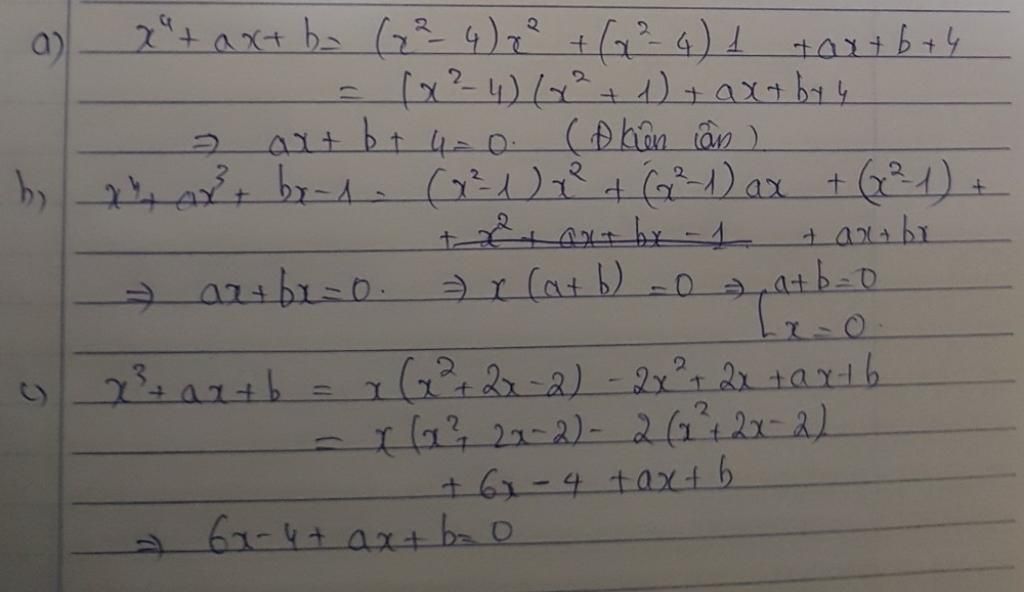 a) x⁴ + ax + b = (x² - 4)x² + (x² - 4)1 + ax + b + 4
= (x² - 4)(x² + 1) + ax + b + 4
⇒ ax + b + 4 = 0. (Đkiện cần)
b) x⁴ + ax³ + bx - 1 = (x² - 1)x² + (x² - 1)ax + (x² - 1) +
+ x² + ax + bx - 1 + ax + bx
⇒ ax + bx = 0. ⇒ x(a + b) = 0 ⇒ [a + b = 0
x = 0.
c) x³ + ax + b = x(x² + 2x - 2) - 2x² + 2x + ax + b
= x(x² + 2x - 2) - 2(x² + 2x - 2)
+ 6x - 4 + ax + b
⇒ 6x - 4 + ax + b = 0